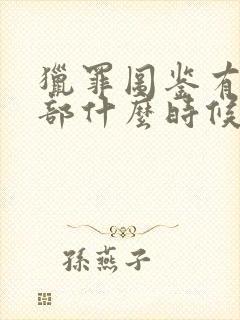 獵罪图鉴有
部什麼時候
孫燕子